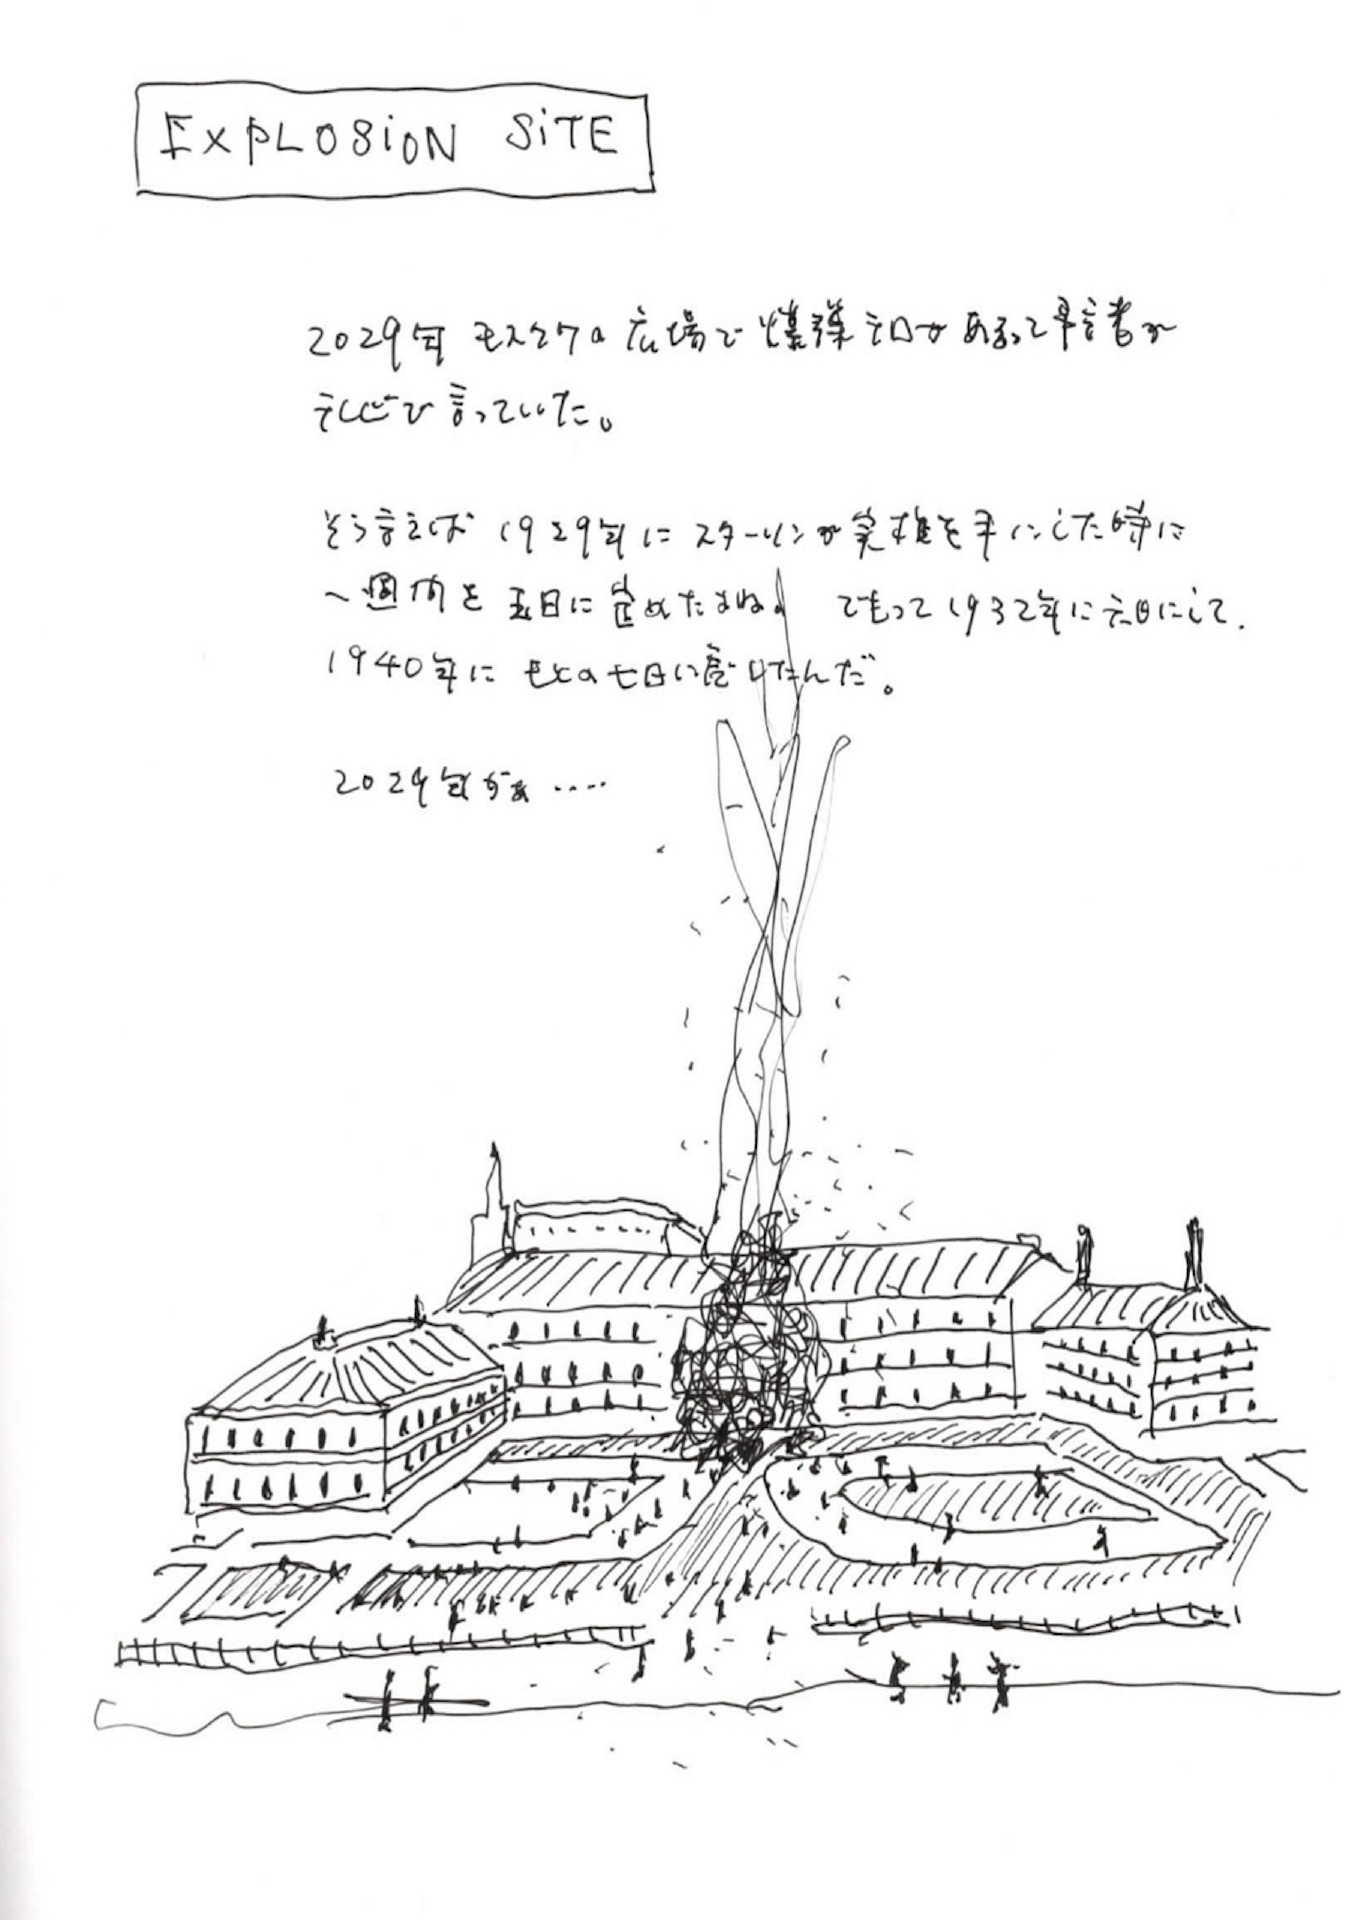 EXPLOSION SITE
2029年 モスクワの広場で爆弾テロがあるって予言者が
テレビで言っていた。
そう言えば 1929年に スターリンが実権を手にした時に
一週間を五日に定めたよね。 でもって1932年に六日にして、
1940年に もとの七日に戻したんだ。
2029年かぁ・・・・・